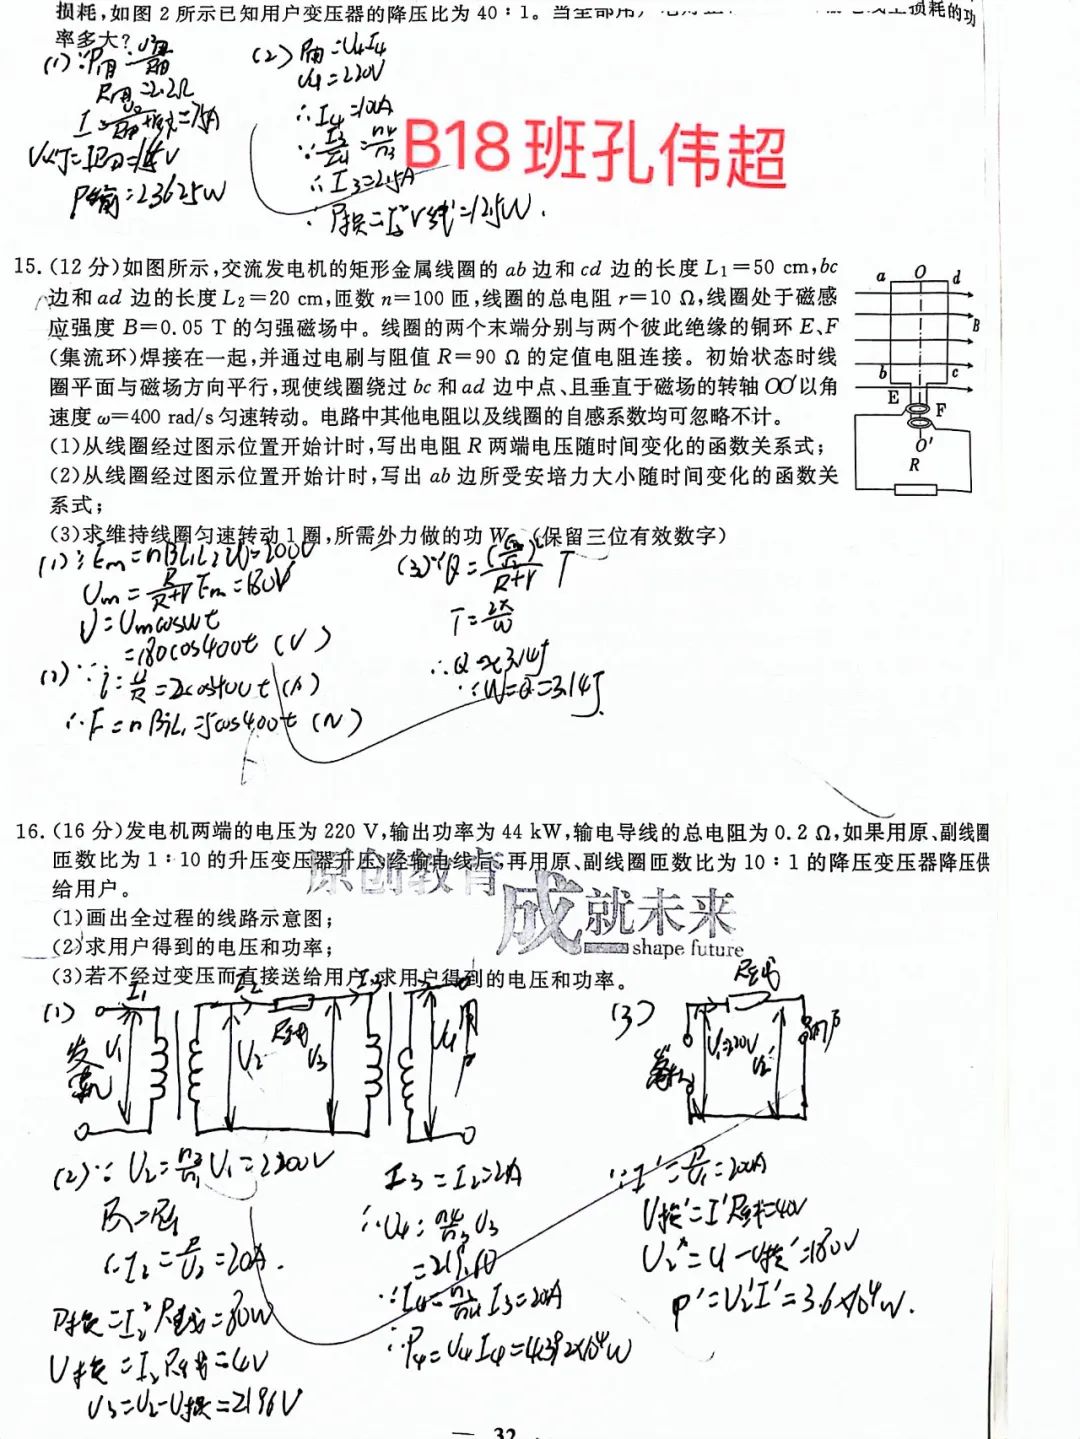 损耗,如图 2 所示已知用户变压器的降压比为 40∶1。当全部用
损耗的功
率多大?
(2)
U4=220V
R用=2.2Ω
∴I4=100A
B18班孔伟超
∴I3=2.5A
P输=23625W
P损=I3²r线=12.5W.
15.(12 分)如图所示,交流发电机的矩形金属线圈的 ab 边和 cd 边的长度 L₁=50 cm,bc
边和 ad 边的长度 L₂=20 cm,匝数 n=100 匝,线圈的总电阻 r=10 Ω,线圈处于磁感
应强度 B=0.05 T 的匀强磁场中。线圈的两个末端分别与两个彼此绝缘的铜环 E、F
(集流环)焊接在一起,并通过电刷与阻值 R=90 Ω 的定值电阻连接。初始状态时线
圈平面与磁场方向平行,现使线圈绕过 bc 和 ad 边中点、且垂直于磁场的转轴 OO′以角
速度 ω=400 rad/s 匀速转动。电路中其他电阻以及线圈的自感系数均可忽略不计。
(1)从线圈经过图示位置开始计时,写出电阻 R 两端电压随时间变化的函数关系式;
(2)从线圈经过图示位置开始计时,写出 ab 边所受安培力大小随时间变化的函数关
系式;
(3)求维持线圈匀速转动 1 圈,所需外力做的功 W (保留三位有效数字)
a O d
B
b c
E F
O′
R
(1)∵Em=nBL1L2ω=200V
Um=R/(R+r)Em=180V
U=Umcosωt
=180cos400t (V)
i=u/R=2cos400t (A)
∴F=nBiL1=5cos400t (N)
T=2π/ω
∴Q≈3.14J
∵W=Q=3.14J.
16.(16 分)发电机两端的电压为 220 V,输出功率为 44 kW,输电导线的总电阻为 0.2 Ω,如果用原、副线圈
匝数比为 1∶10 的升压变压器升压,经输电线后,再用原、副线圈匝数比为 10∶1 的降压变压器降压供
给用户。
(1)画出全过程的线路示意图;
(2)求用户得到的电压和功率;
(3)若不经过变压而直接送给用户,求用户得到的电压和功率。
原创教育
成就未来
shape future
(1) I1 I2 R线 I3
U1 U2 U3 U4 用户
(3) R线
U1=220V U2′ 用户
(2)∵U2=n2/n1 U1=2200V
∴I2=P/U2=20A.
P损=I2²R线=80W
U损=I2R线=4V
U3=U2-U损=2196V
I3=I2=20A
∴U4=n4/n3 U3
=219.6V
∴P4=U4I4=4.392×10⁴W
∵I′=P/U1=200A
U损′=I′R线=40V
U2′=U-U损′=180V
P′=U2′I′=3.6×10⁴W.
— 32